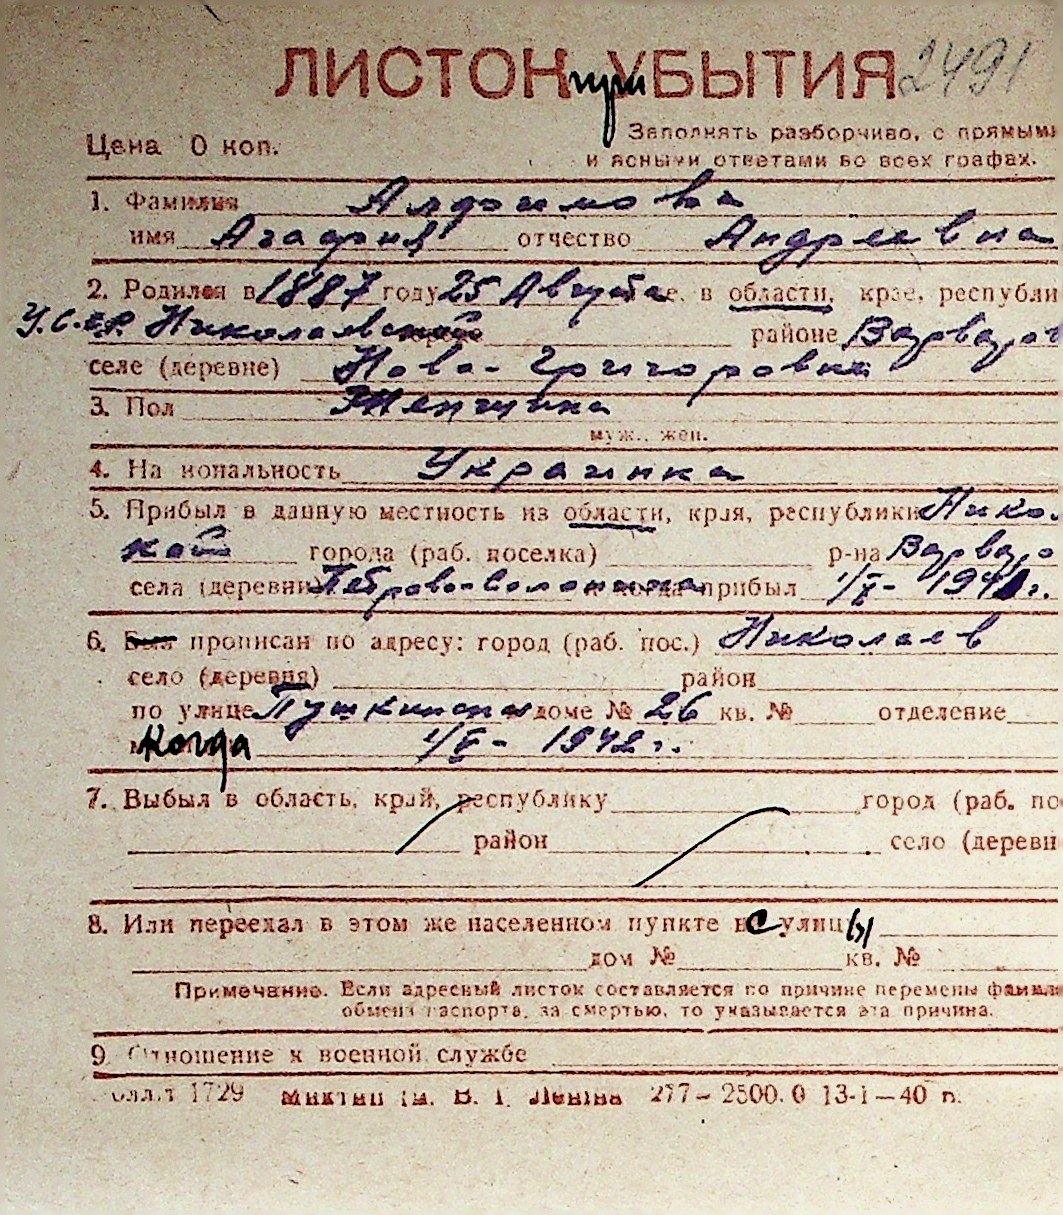 ЛИСТОК при УБЫТИЯ 2491
Цена 0 коп. Заполнять разборчиво, с прямыми
и ясными ответами во всех графах.
1. Фамилия Алфоимова
имя Агафия отчество Андреевна
2. Родился в 1887 году 25 Августа, в области, крае, республи
У.С.С.Р. Николаевской районе Варваро
селе (деревне) Ново-Григоровка
3. Пол Женщина
муж., жен.
4. На иопальность Украинка
5. Прибыл в данную местность из области, края, республики Нико.
кой города (раб. поселка) р-на Варваро
села (деревни) Петрово-Солониха когда прибыл 1/V- 1942 г.
6. Был прописан по адресу: город (раб. пос.) Николаев
село (деревня) район
по улице Пушкинская доме № 26 кв. № отделение
Когда 1/V- 1942 г.
7. Выбыл в область, край, республику город (раб. по
район село (деревн
8. Или переехал в этом же населенном пункте с улицы
дом № кв. №
Примечание. Если адресный листок составляется по причине перемены фамили
обмена паспорта, за смертью, то указывается эта причина.
9. Отношение к военной службе
1729 В. І. Леніна 277–2500.0 13-1–40 п.